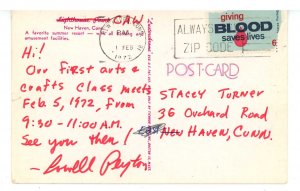 Lighthouse Point CAW
New Haven, Conn.
A favorite summer resort
amusement facilities.
Hi!
Our first arts &
crafts class meets
Feb 5, 1972, from
9:30 - 11:00 A.M.
See you then!
- Lowell Peyton
PM
1 FEB
1972
ALWAYS
ZIP CODE
giving
BLOOD
saves lives
6c
POST CARD
STACEY TURNER
36 Orchard Road
New HAVEN, CONN.